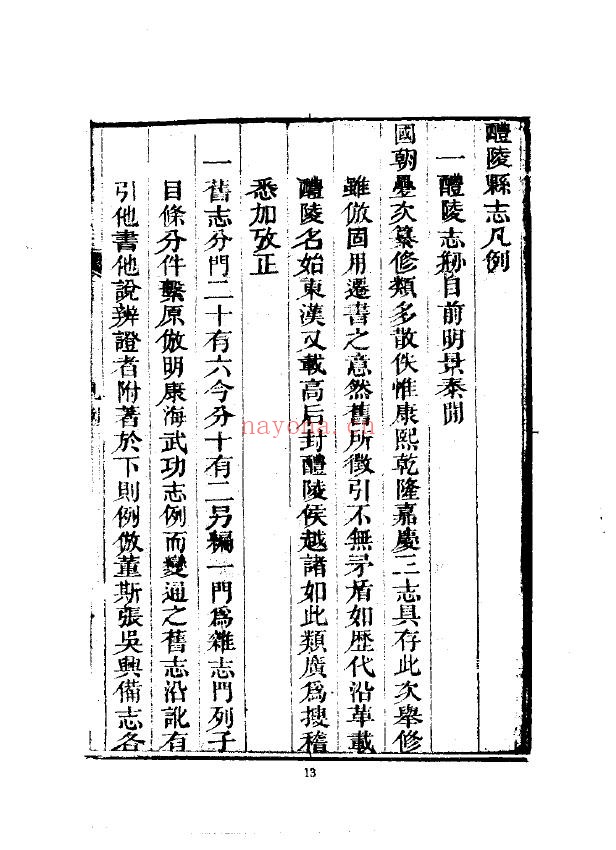 醴陵縣志凡例
一醴陵志刱自前明景泰閒
國朝疊次纂修類多散佚惟康熙乾隆嘉慶三志具存此次舉修
雖倣固用遷書之意然舊所徵引不無矛盾如歷代沿革載
醴陵名始東漢又載高后封醴陵侯越諸如此類廣為搜稽
悉加攷正
一舊志分門二十有六今分十有二另編一門為雜志門列子
目條分件繫原倣明康海武功志例而變通之舊志沿訛有
引他書他說辨證者附著於下則例倣董斯張吳興備志各
nayona.cn
13